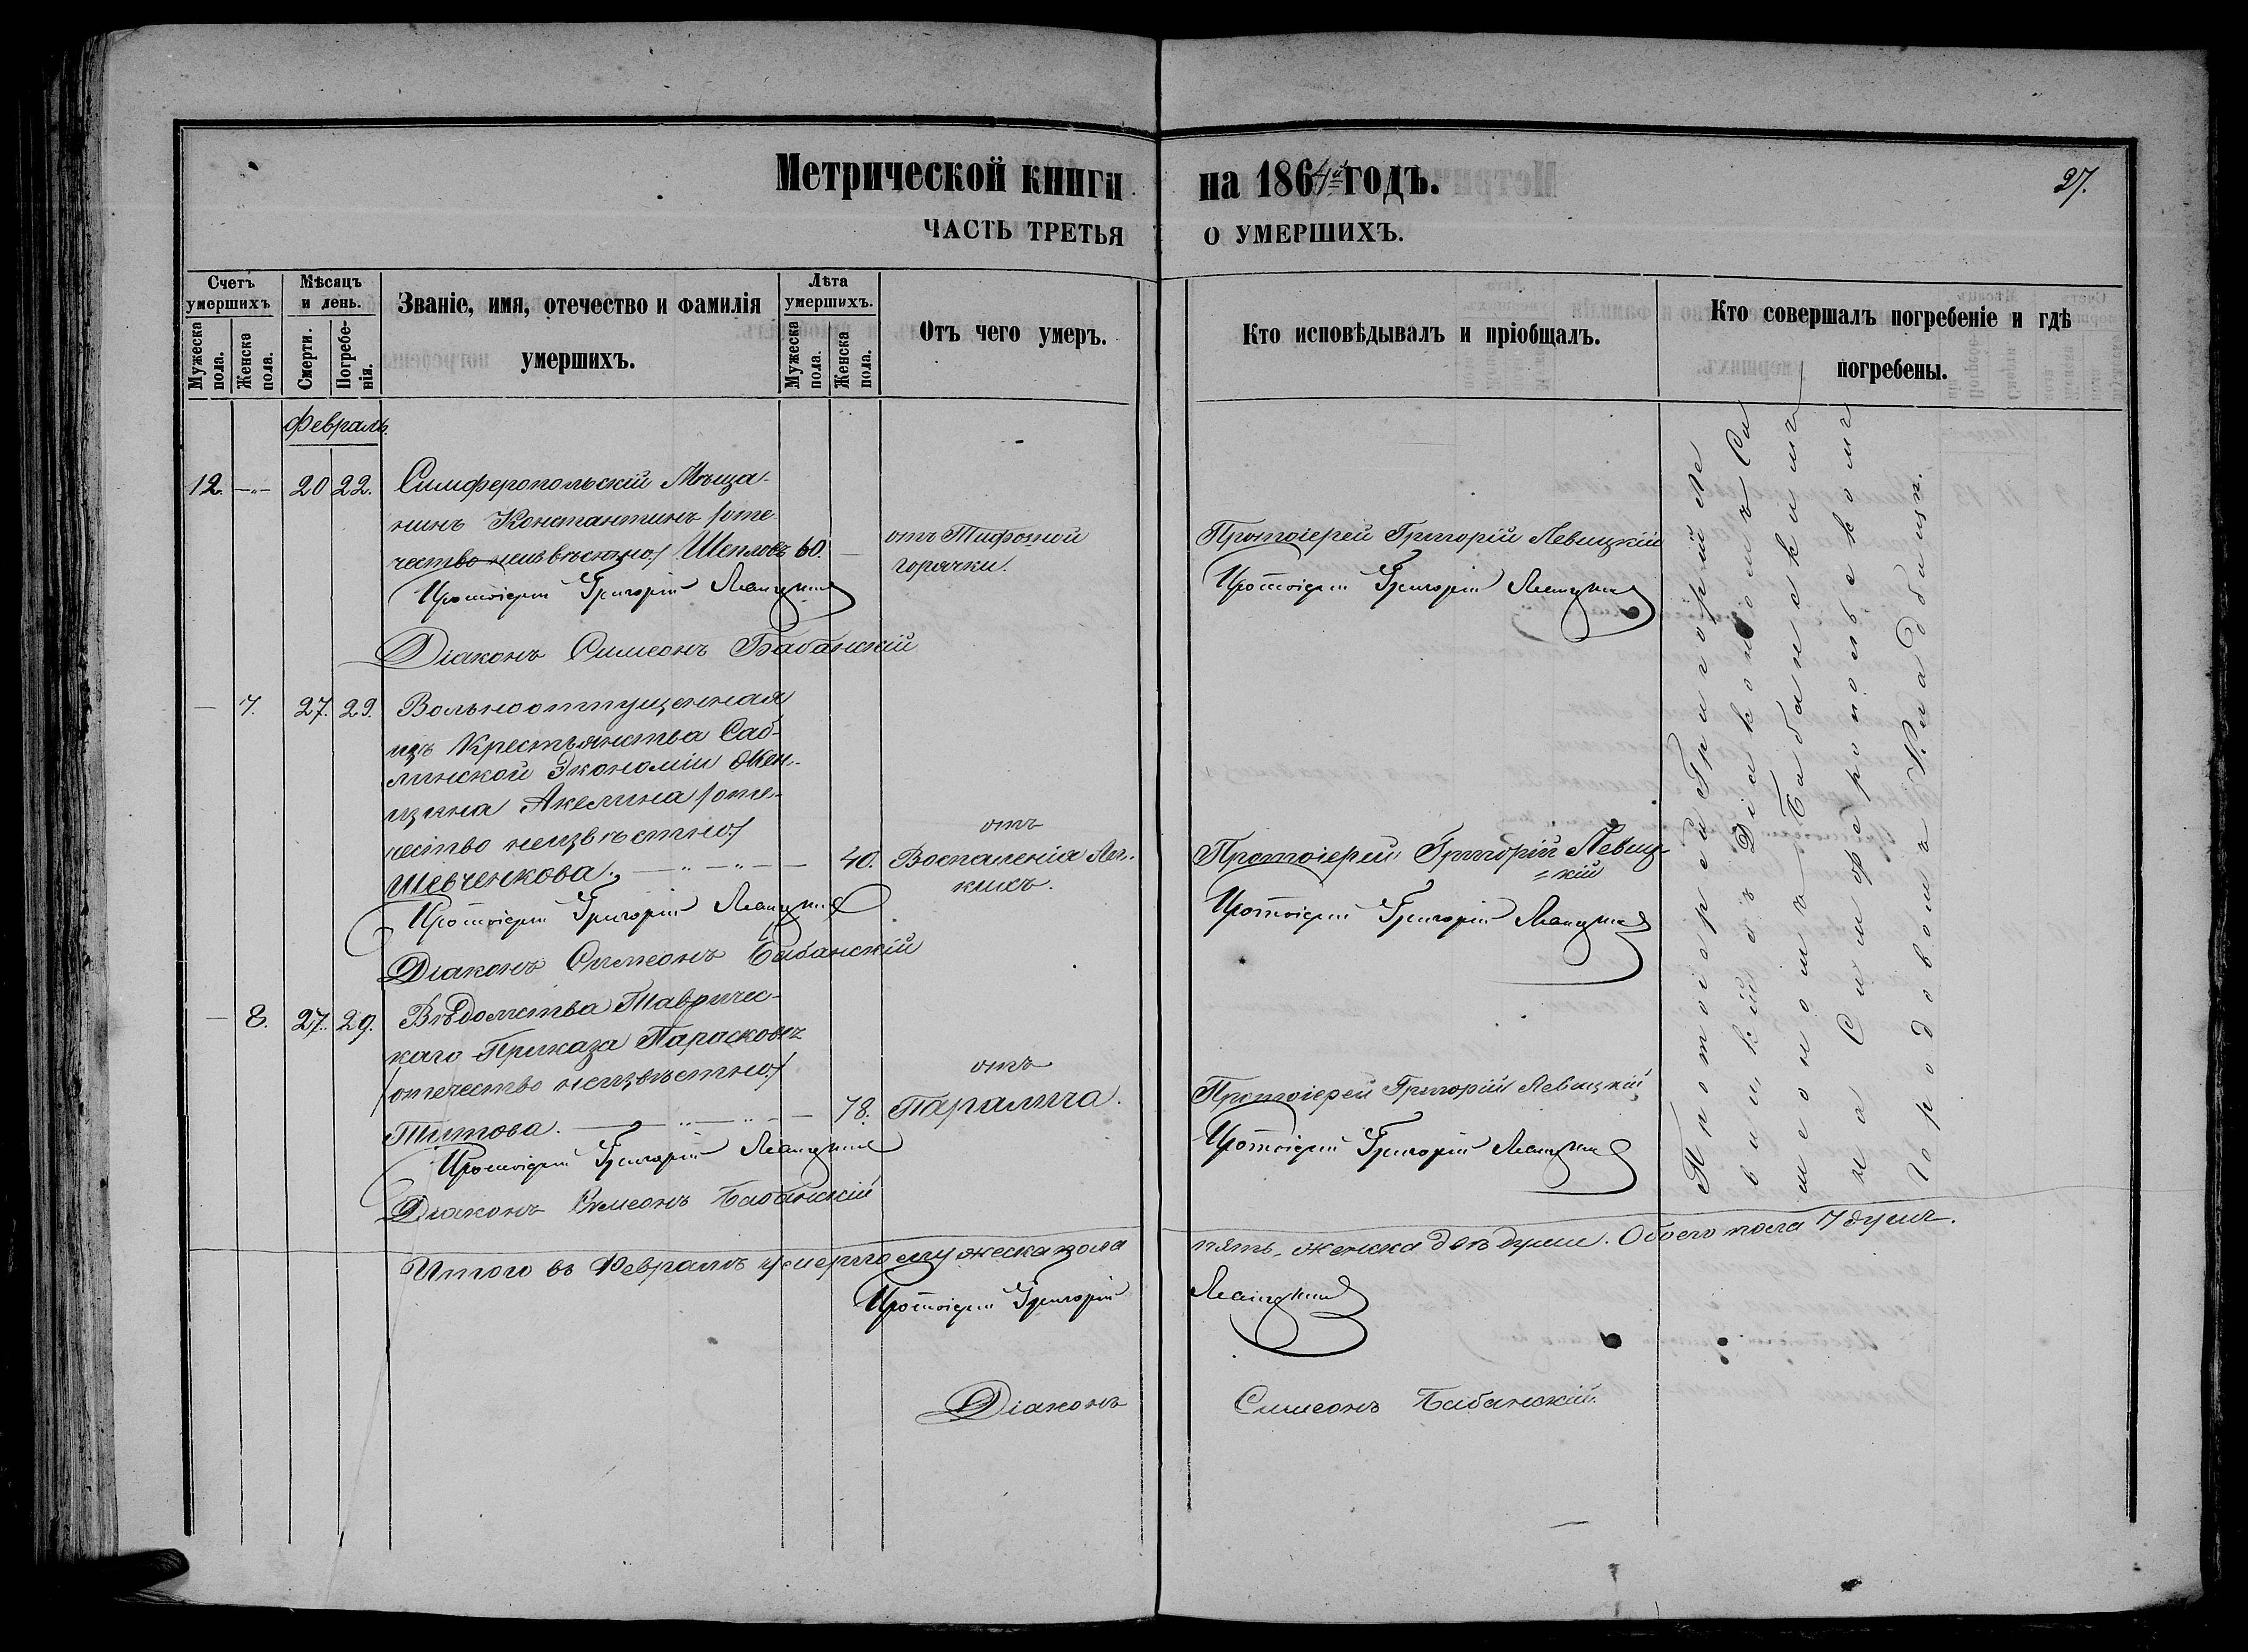 Метрической книги на 1864й годъ.
27.
ЧАСТЬ ТРЕТЬЯ О УМЕРШИХЪ.
Счетъ умершихъ
Мужеска пола.
Женска пола.
Мѣсяцъ и день.
Смерти.
Погребенія.
Званіе, имя, отечество и фамилія умершихъ.
Лѣта умершихъ.
Мужеска пола.
Женска пола.
Отъ чего умеръ.
Кто исповѣдывалъ и пріобщалъ.
Кто совершалъ погребеніе и гдѣ погребены.
Февраль.
12. 20 22. Симферопольскій Мѣща-
нинъ Константинъ /оте-
чество неизвѣстно/ Шепловъ 60.
отъ Тифозной
горячки.
Протоіерей Григорій Левицкій
Протоіерей Григорій Левицкій
Протоіерей Григорій Левицкій
Діаконъ Симеонъ Бабанскій
7. 27. 29. Вольноотпущенная
изъ Крестьянства Саб-
линской Экономіи Жен-
щина Акелина /оте-
чество неизвѣстно/
Шевченкова. 40.
отъ
Воспаленія Лег-
кихъ.
Протоіерей Григорій Левиц-
кій
Протоіерей Григорій Левицкій
Протоіерей Григорій Левицкій
Діаконъ Симеонъ Бабанскій
8. 27. 29. Вѣдомства Тавричес-
каго Приказа Параскова
/отечество неизвѣстно/
Титова. 78.
отъ
Паралича.
Протоіерей Григорій Левицкій
Протоіерей Григорій Левицкій
Протоіерей Григорій Левицкій
Діаконъ Симеонъ Бабанскій
Протоіерей Григорій Ле
вицкій съ Діакономъ Си
меономъ Бабанскимъ
на Симферопольскомъ
городовомъ Кладбищѣ.
Итого въ Февралѣ умерло мужеска пола пять, женска двѣ души. Обоего пола 7 душъ.
Протоіерей Григорій Левицкій
Діаконъ Симеонъ Бабанскій.